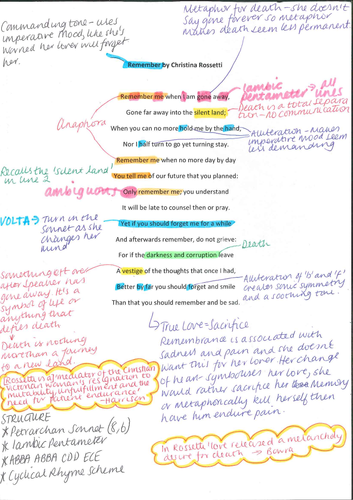 Commanding tone - uses
imperative mood, like she's
worried her lover will forget
her.
Metaphor for death - she doesn't
say gone forever so metaphor
makes death seem less permanent
Remember by Christina Rossetti
Remember me when I am gone away,
Iambic pentameter → all lines
Gone far away into the silent land;
Death is a total separa
tion - no communication
Anaphora
When you can no more hold me by the hand,
Alliteration - Makes
imperative mood seem
less demanding
Nor I half turn to go yet turning stay.
Remember me when no more day by day
Recalls the 'silent land'
in line 2
You tell me of our future that you planned:
ambiguous
Only remember me; you understand
It will be late to counsel then or pray.
VOLTA → Turn in the
sonnet as she
changes her
mind
Yet if you should forget me for a while
And afterwards remember, do not grieve:
Death
For if the darkness and corruption leave
Something left over
after speaker has
gone away. It's a
symbol of life or
anything that
defies death
A vestige of the thoughts that once I had,
Better by far you should forget and smile
Alliteration of 'b' and 'f'
creates sonic symmetry
and a soothing tone.
Than that you should remember and be sad.
↳ Death is nothing
more than a journey
to a new land
↳ True Love = Sacrifice
Remembrance is associated with
sadness and pain and she doesnt
want this for her lover. Her change
of heart symbolises her love, she
would rather sacrifice her Memory
or metaphorically kill herself then
have him endure pain.
'Rossetti is a mediator of the Christian
Victorian woman's resignation to
mutability, unfulfillment and the
need for patient endurance'
- Harrison
STRUCTURE
* Petrarchan Sonnet (8,6)
* Iambic Pentameter
* ABBA ABBA CDD ECE
* Cyclical Rhyme Scheme
In Rossetti 'love released a melancholy
desire for death' → Bowra